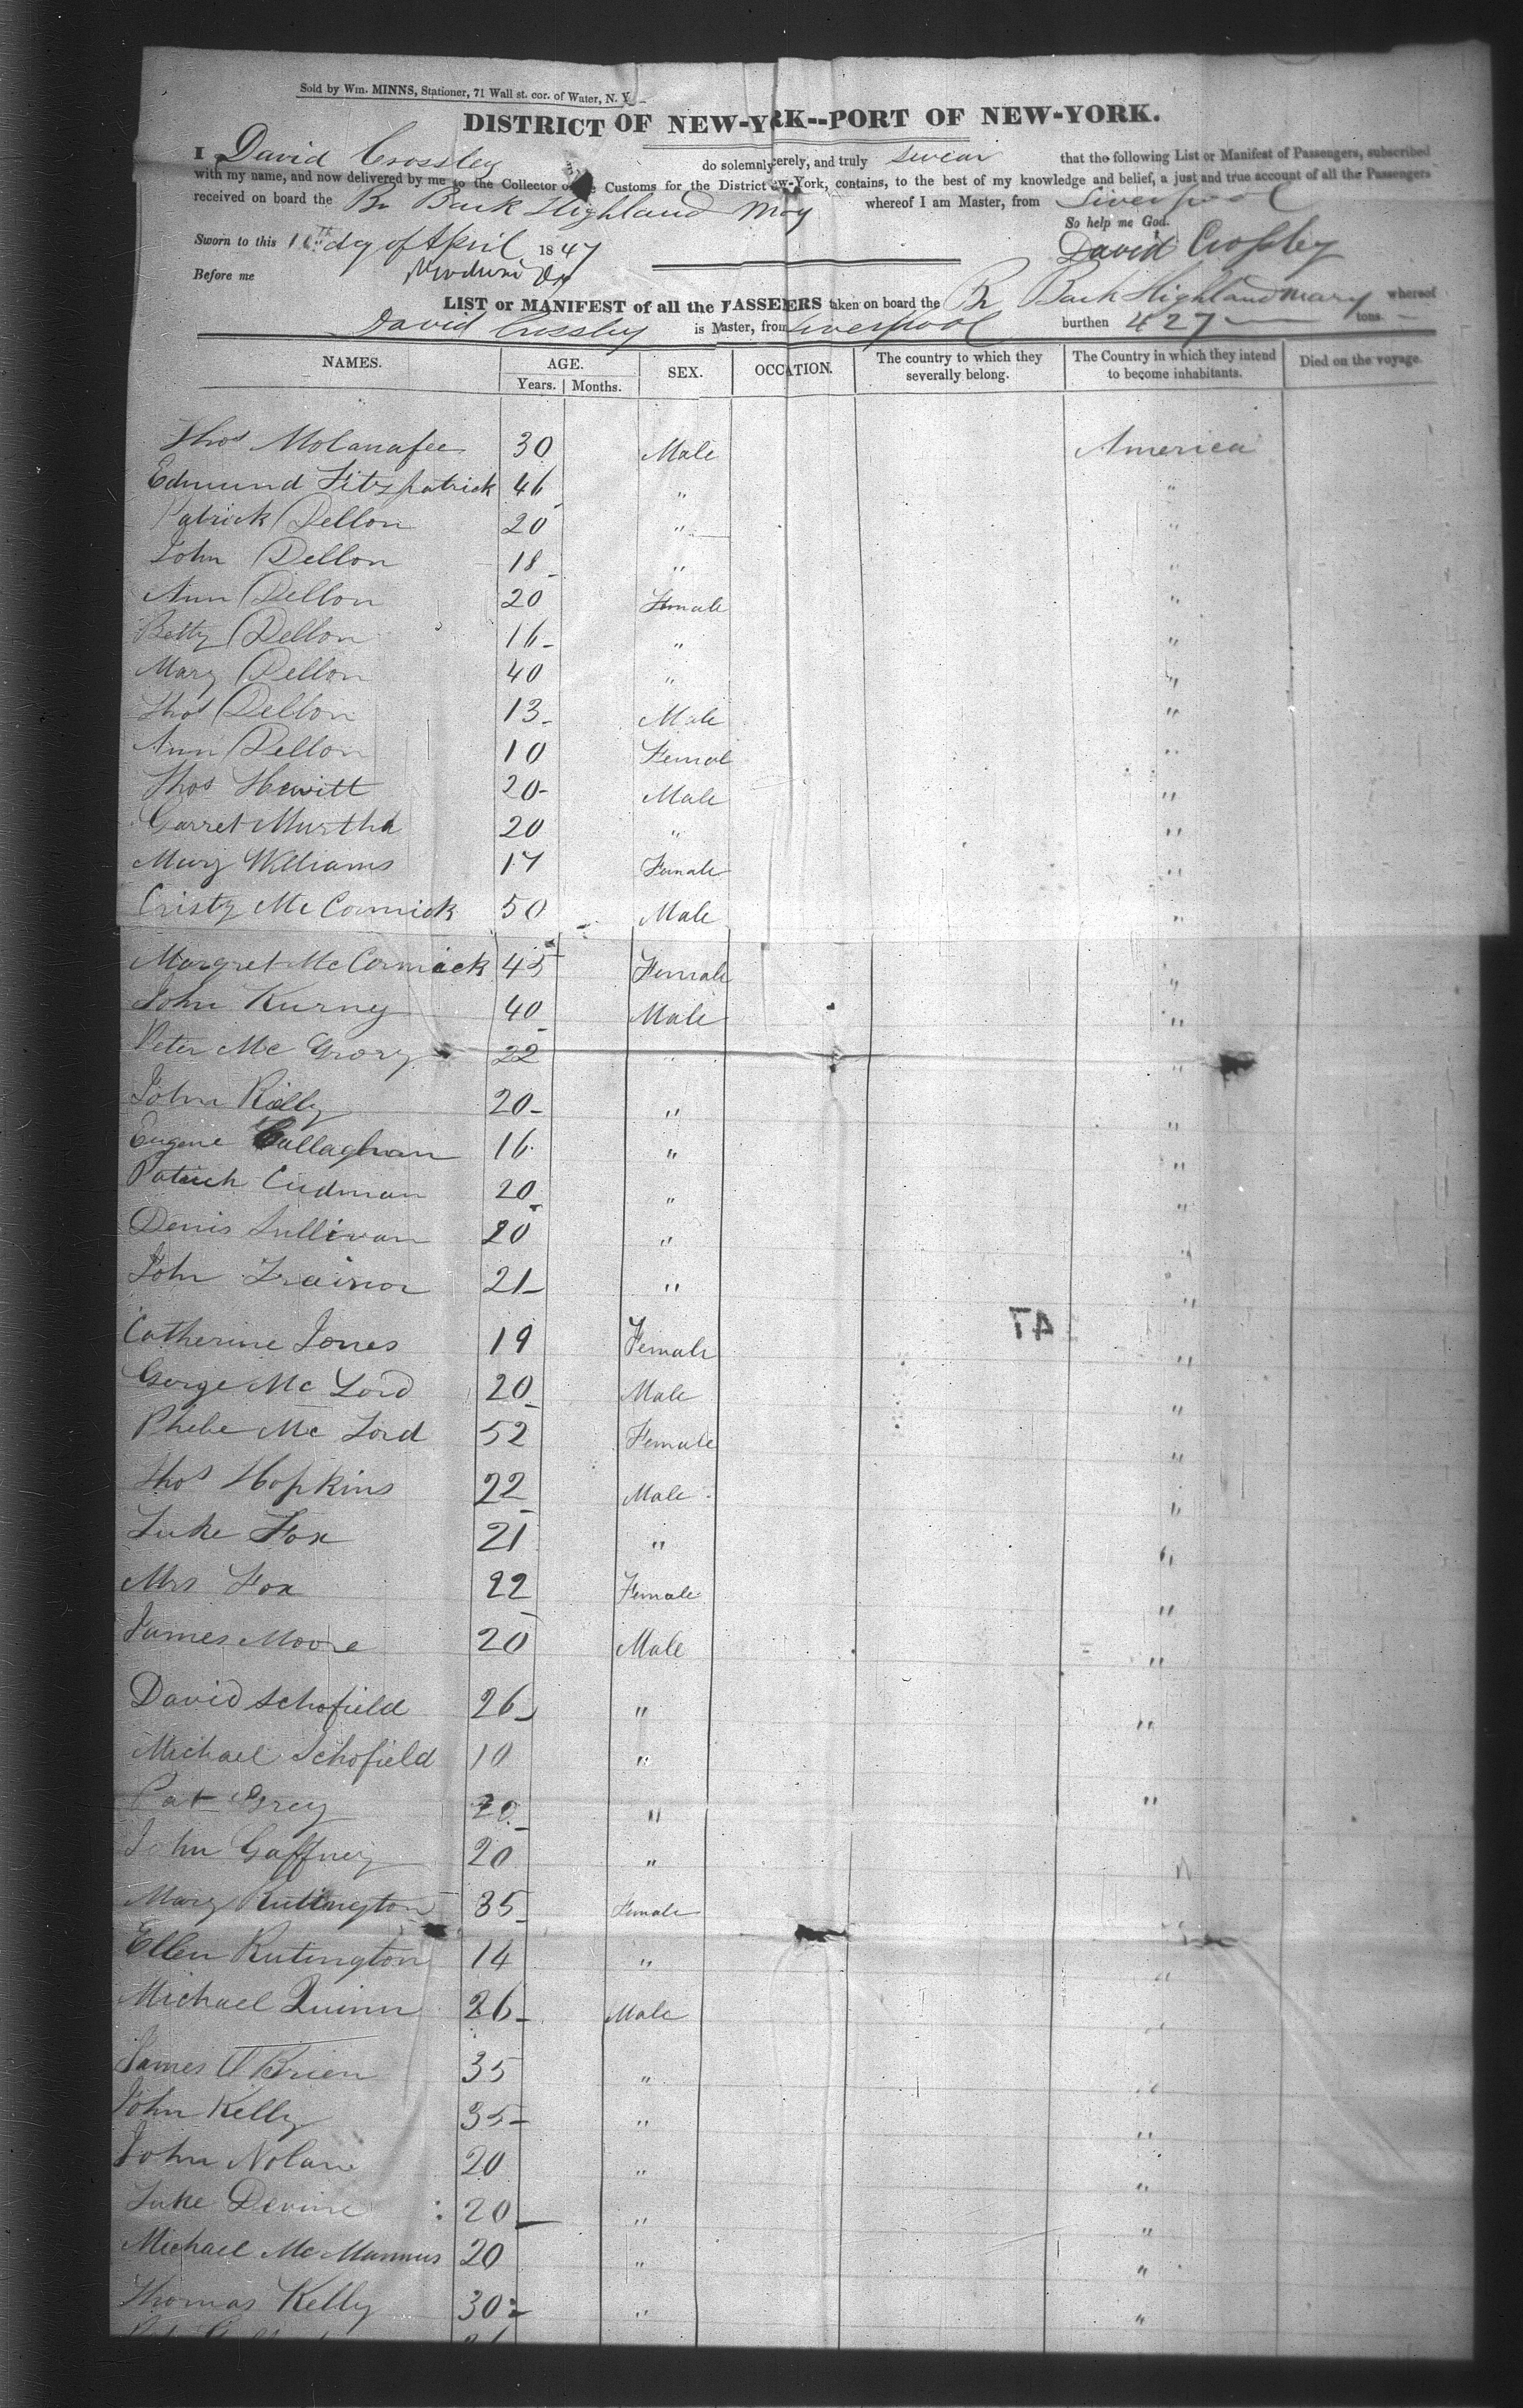 Sold by Wm. MINNS, Stationer, 71 Wall st. cor. of Water, N. Y.
DISTRICT OF NEW-YRK--PORT OF NEW-YORK.
I David Crossley do solemnly cerely, and truly swear that the following List or Manifest of Passengers, subscribed
with my name, and now delivered by me to the Collector of Customs for the District w-York, contains, to the best of my knowledge and belief, a just and true account of all the Passengers
received on board the Br Bark Highland May whereof I am Master, from Liverpool
So help me God.
Sworn to this day of April 1847 David Crossley
Before me
LIST or MANIFEST of all the PASSEERS taken on board the Br Bark Highland Mary whereof
David Crossley is Master, from Liverpool burthen 427 tons
NAMES. AGE. Years. Months. SEX. OCCATION. The country to which they severally belong. The Country in which they intend to become inhabitants. Died on the voyage.
Thos 30 Male America
Edmund Fitzpatrick 46 " "
Patrick Dellon 20 " "
John Dellon 18 " "
Ann Dellon 20 Female "
Betty Dellon 16 " "
Mary Dellon 40 " "
Thos Dellon 13 Male "
Ann Dellon 10 Femal "
Thos Hewitt 20 Male "
Garret Murtha 20 " "
Mary Williams 17 Female "
Cristy McCormick 50 Male "
Margret McCormick 45 Female "
John Kurny 40 Male "
Peter McGrory 22 " "
John Rilly 20 " "
Eugene Callaghan 16 " "
Patrick Cudman 20 " "
Denis Sullivan 20 " "
John Trainor 21 " "
Catherine Jones 19 Female "
47
George Mc Lord 20 Male "
Phebe Mc Lord 52 Female "
Thos Hopkins 22 Male "
Luke Fox 21 " "
Mrs Fox 22 Female "
James Moore 20 Male "
David Schofield 26 " "
Michael Schofield 10 " "
Pat Grey 20 " "
John Gaffney 20 " "
Mary Rutington 35 Female "
Ellen Rutington 14 " "
Michael Quinn 26 Male "
James O'Brien 35 " "
John Kelly 35 " "
John Nolan 20 " "
Luke Devine 20 " "
Michael McMannus 20 " "
Thomas Kelly 30 " "